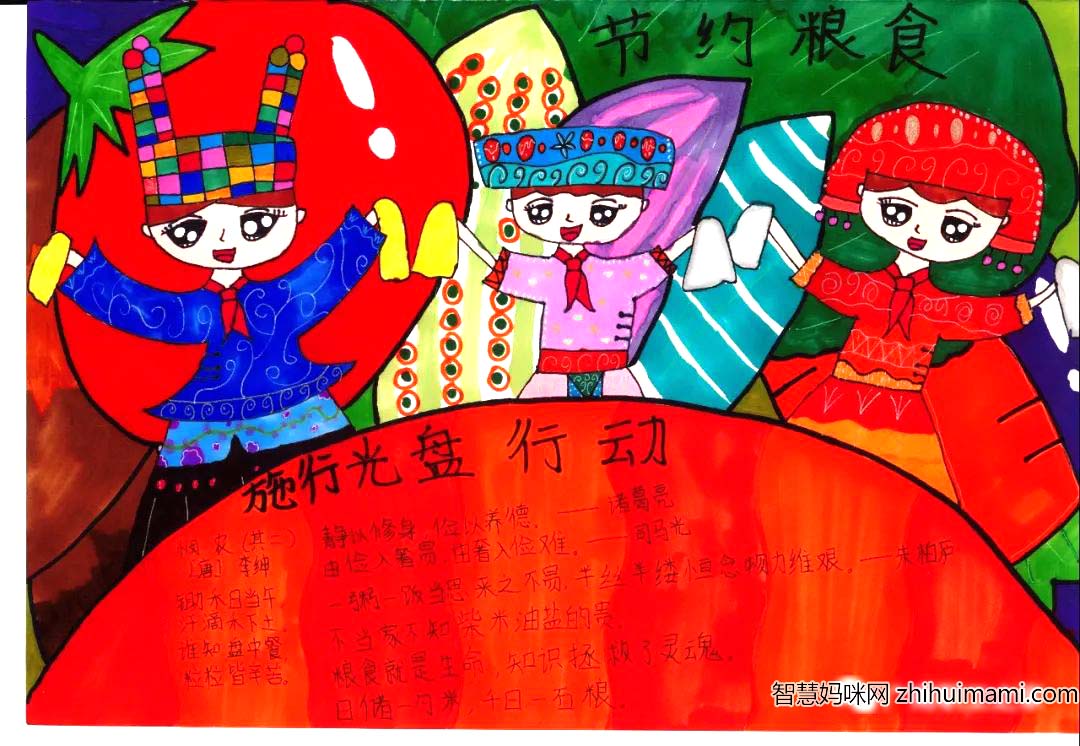 节约粮食
施行光盘行动
悯农(其二)
[唐] 李绅
锄禾日当午
汗滴禾下土
谁知盘中餐
粒粒皆辛苦。
静以修身,俭以养德。——诸葛亮
由俭入奢易,由奢入俭难。——司马光
一粥一饭当思来之不易,半丝半缕恒念物力维艰。——朱柏庐
不当家不知柴米油盐的贵.
粮食就是生命,知识拯救了灵魂。
日储一勺米,千日一石粮。
智慧妈咪网 zhihuimami.com